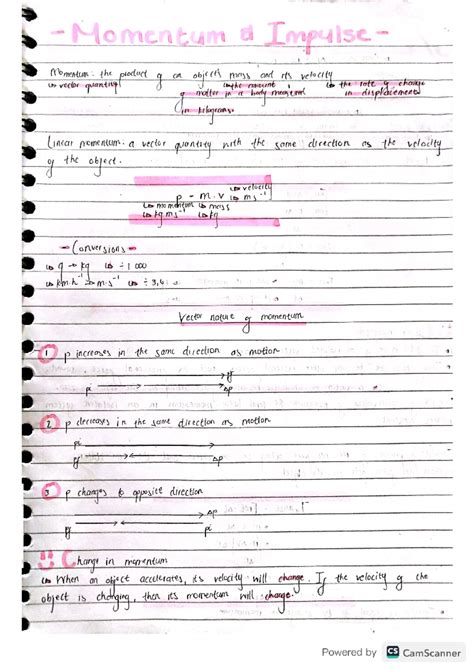 - Momentum & Impulse -
Momentum: the product of an object's mass and its velocity
↳ vector quantity ↳ the amount ↳ the rate of change
of matter in a body measured in displacement
in kilograms.
Linear momentum: a vector quantity with the same direction as the velocity
of the object.
↳ velocity
p = m.v ↳ m s⁻¹
↳ momentum ↳ mass
↳ kg m s⁻¹ ↳ kg
- Conversions -
↳ g → kg ↳ ÷ 1 000
↳ km.h⁻¹ → m.s⁻¹ ↳ ÷ 3,6
Vector nature of momentum
1 p increases in the same direction as motion
pf
pi Δp
2 p decreases in the same direction as motion
pi
pf Δp
3 p changes to opposite direction
Δp
pf pi
Change in momentum
↳ When an object accelerates, its velocity will change. If the velocity of the
object is changing, then its momentum will change.
Powered by CS CamScanner